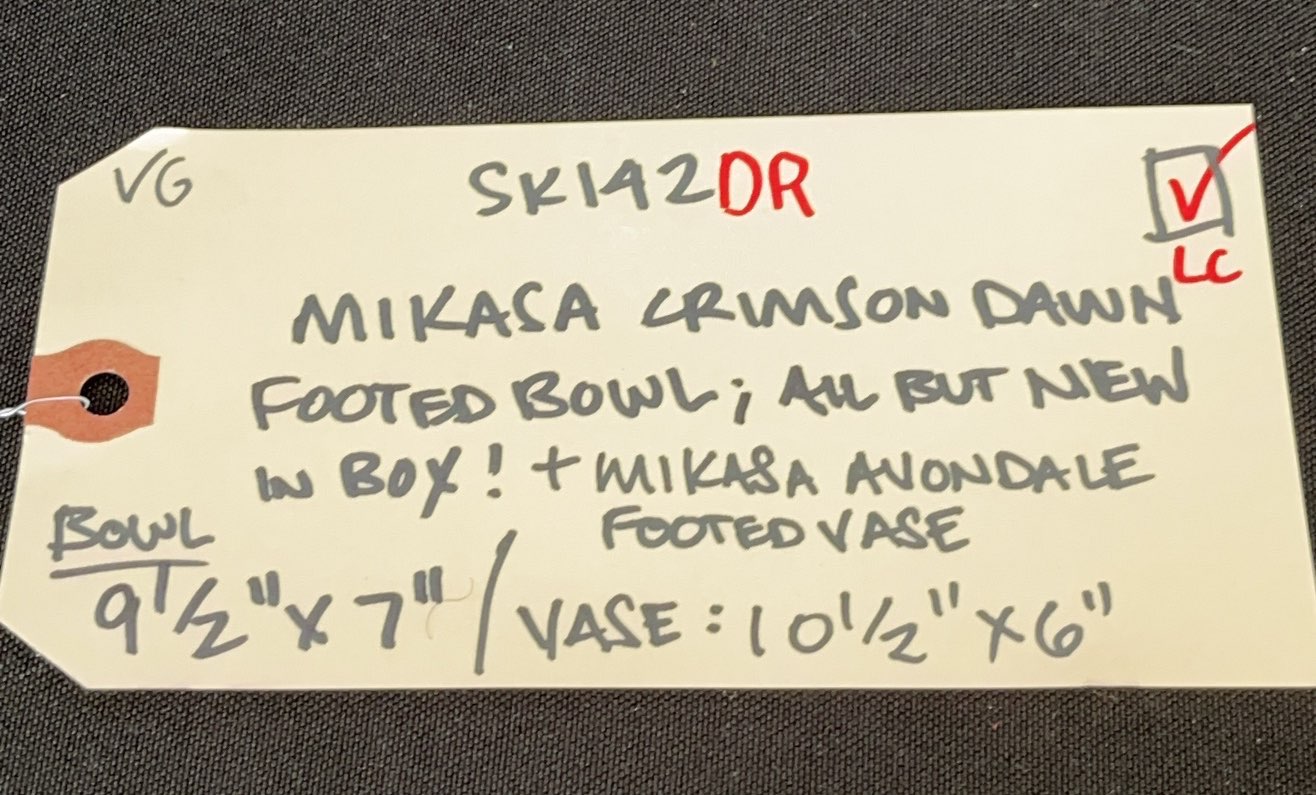 VG SK142DR V
LC
MIKASA CRIMSON DAWN
FOOTED BOWL; ALL BUT NEW
IN BOX! + MIKASA AVONDALE
FOOTED VASE
BOWL
9 1/2" X 7" / VASE: 10 1/2" X 6"